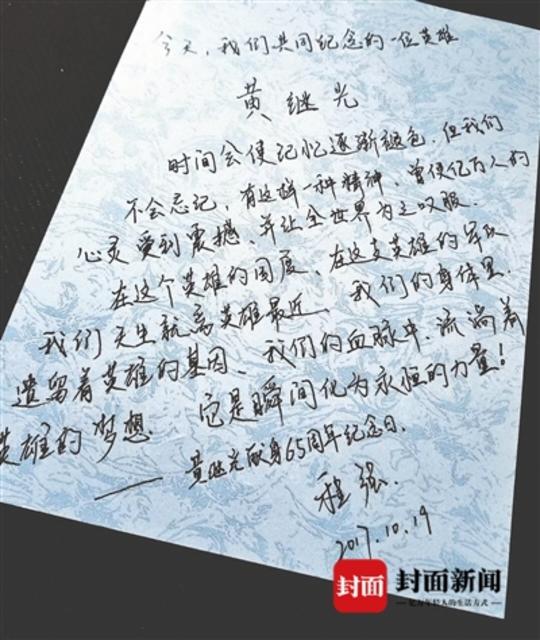 今天，我们共同纪念的一位英雄
黄继光
时间会使记忆逐渐褪色，但我们
不会忘记，有这样一种精神，曾使亿万人的
心灵受到震撼、并让全世界为之叹服．
在这个英雄的国度、在这支英雄的军队
我们天生就离英雄最近、我们的身体里．
遗留着英雄的基因、我们的血脉中．流淌着
英雄的梦想．它是瞬间化为永恒的力量！
——黄继光献身65周年纪念日．
程强．
2017.10.19
封面 封面新闻
亿万年轻人的生活方式